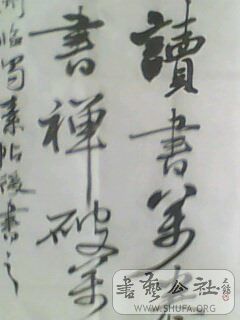 讀書萬
書禅破萬
臨蜀素帖後書之
書藝公社
WWW.SHUFA.ORG